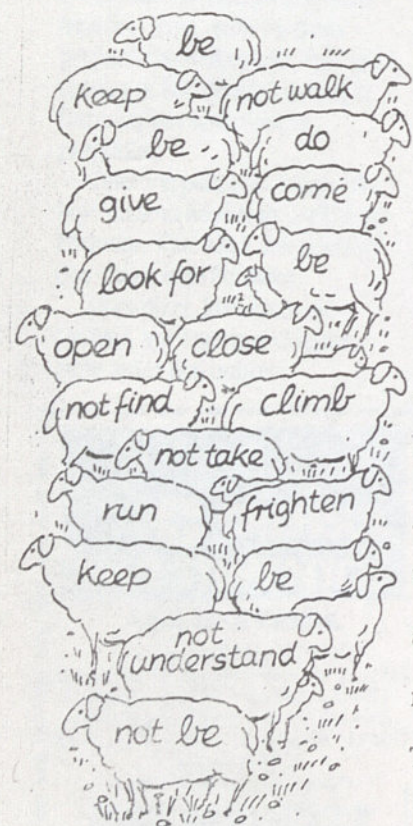 be
keep not walk
be do
give come
look for be
open close
not find climb
not take
run frighten
keep be
not
understand
not be